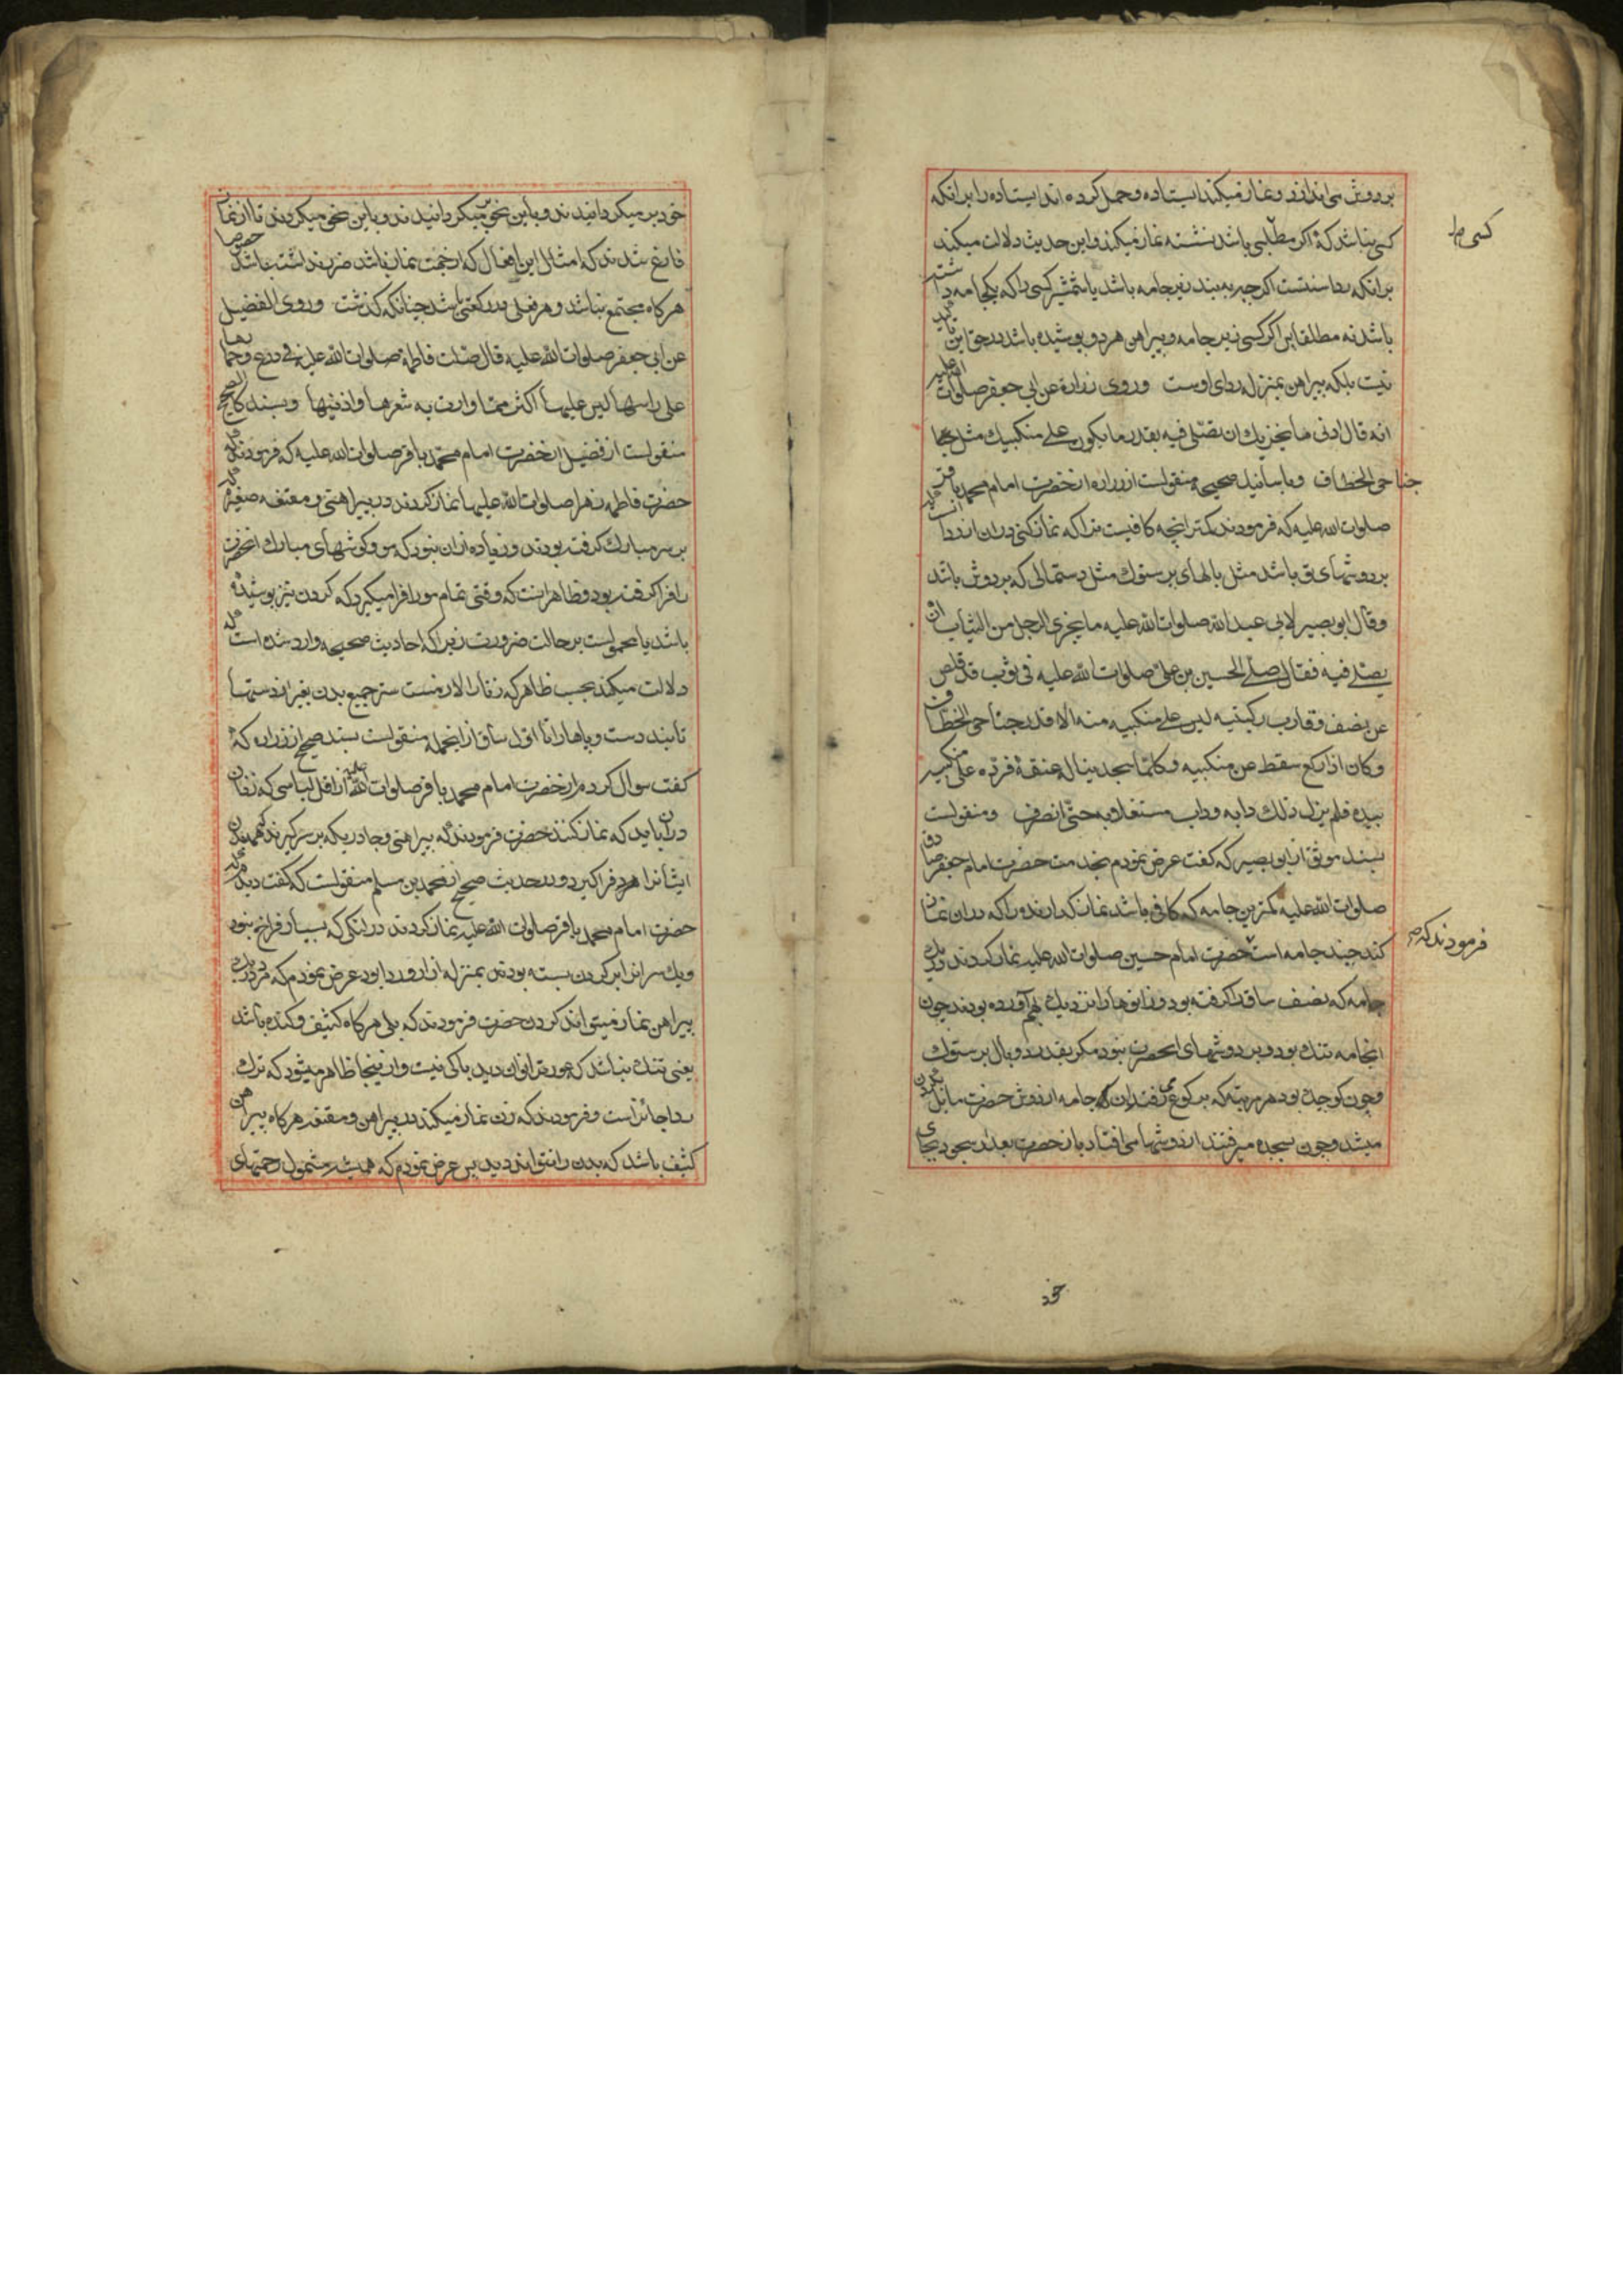 بر دوش می اندازد و نماز میکند ایستاده و حمل کرده اند ایستاده را بر انکه
کسی نباشد که اکر مطلبی باشد نشسته نماز میکند و این حدیث دلالت میکند
کسی
بر انکه ردا سنتست اکر چه به بند زیر جامه باشد یا شمشیر کسی را که یکجامه داشته
باشد نه مطلقا پس اکر کسی زیر جامه و پیراهن هر دو پوشیده باشد در حق این
نیست بلکه پیراهن بمنزله ردای اوست و روی زرارة عن ابی جعفر صلوات الله علیه
انه قال ادنی ما یجزیك ان تصلی فیه بقدر ما یکون علی منکبیك مثل
جناحی الخطاف و باسانید صحیحه منقولست از زراره از حضرت امام محمد باقر
صلوات الله علیه که فرمودند کمتر انچه کافیست ترا که نماز کنی در ان از ردا
بر دوشهای تو باشد مثل بالهای پرستوك مثل دستمالی که بر دوش باشد
و قال ابو بصیر لابی عبد الله صلوات الله علیه ما یجزی الرجل من الثیاب ان
یصلی فیه فقال صلی الحسین بن علی صلوات الله علیه فی ثوب قد قلص
عن نصف و قارب رکبتیه لیس علی منکبیه منه الا قدر جناحی الخطاف
و کان اذا رکع سقط عن منکبیه و کلما سجد یناله عنقه فرده علی منکبیه
بیده فلم یزل ذلك دابه و داب مشتغلا به حتی انصرف و منقولست
بسند موثق از ابو بصیر که کفت عرض نمودم بخدمت حضرت امام جعفر صادق
صلوات الله علیه کمترین جامه که کافی باشد نماز کذارنده را که در ان نماز
کند چند جامه است حضرت امام حسین صلوات الله علیه نماز کردند در یك
فرمودند که
جامه که نصف ساق را کرفته بود و زانوها را نزدیك بهم آورده بودند چون
انجامه تنك بود و بر دوشهای انحضرت نبود مکر بقدر دو بال پرستوك
و چون کوچك بود هر مرتبه که برکوع میرفتند ان جامه از دوش حضرت مایل بکردن
میشد و چون بسجده میرفتند از دوشها می افتاد باز حضرت بعد از سجود بجای
خود بر میکردانیدند و باین نحو بر میکردانیدند و باین نحو میکردند تا از نماز
فارغ شدند که امثال این افعال که از جهت نماز باشد ضرر نداشته باشد خصوصا
هر کاه مجتمع نباشد و هر فعلی در رکعتی باشد چنانکه کذشت و روی الفضیل
عن ابی جعفر صلوات الله علیه قال صلت فاطمة صلوات الله علیها فی درع و خمارها
علی راسها لیس علیها اکثر مما وارت به شعرها و اذنیها و بسند کالصحیح
منقولست از فضیل از حضرت امام محمد باقر صلوات الله علیه که فرمودند که
حضرت فاطمه زهرا صلوات الله علیها نماز کردند در پیراهنی و مقنعه صغیره که
بر سر مبارك کرفته بودند و زیاده از ان نبود که مو و کوشهای مبارك انحضرت
را فرا کرفته بود و ظاهر انست که وقتی تمام مو را فرا میکیرد که کردن نیز پوشیده
باشد یا محمولست بر حالت ضرورت زیرا که احادیث صحیحه وارد شده است که
دلالت میکند بحسب ظاهر که زنان را لازمست ستر جمیع بدن بغیر از دستها
تا بند دست و پاها را تا اول ساق از انجمله منقولست بسند صحیح از زراره که
کفت سوال کردم از حضرت امام محمد باقر صلوات الله علیه از اقل لباسی که زنان
دران باید که نماز کنند حضرت فرمودند که پیراهنی و چادر یکه بر سر کیرند که همه بدن
ایشانرا فرا کیرد و در حدیث صحیح از محمد بن مسلم منقولست که کفت دیدم که
حضرت امام محمد باقر صلوات الله علیه نماز کردند در لنکی که بسیار فراخ نبود
و یك سر انرا بر کردن بسته بودند بمنزله ازار و ردا بود عرض نمودم که مرد در یك
پیراهن نماز میتواند کردن حضرت فرمودند که بلی هر کاه کثیف و کنده باشد
یعنی تنك نباشد که عورت را توان دید باکی نیست و از اینجا ظاهر میشود که ترك
ردا جائز است و فرمودند که زن نماز میکند در پیراهن و مقنعه هر کاه پیراهن
کثیف باشد که بدن را نتواند دید پس عرض نمودم که همیشه مشمول رحمتهای
خود